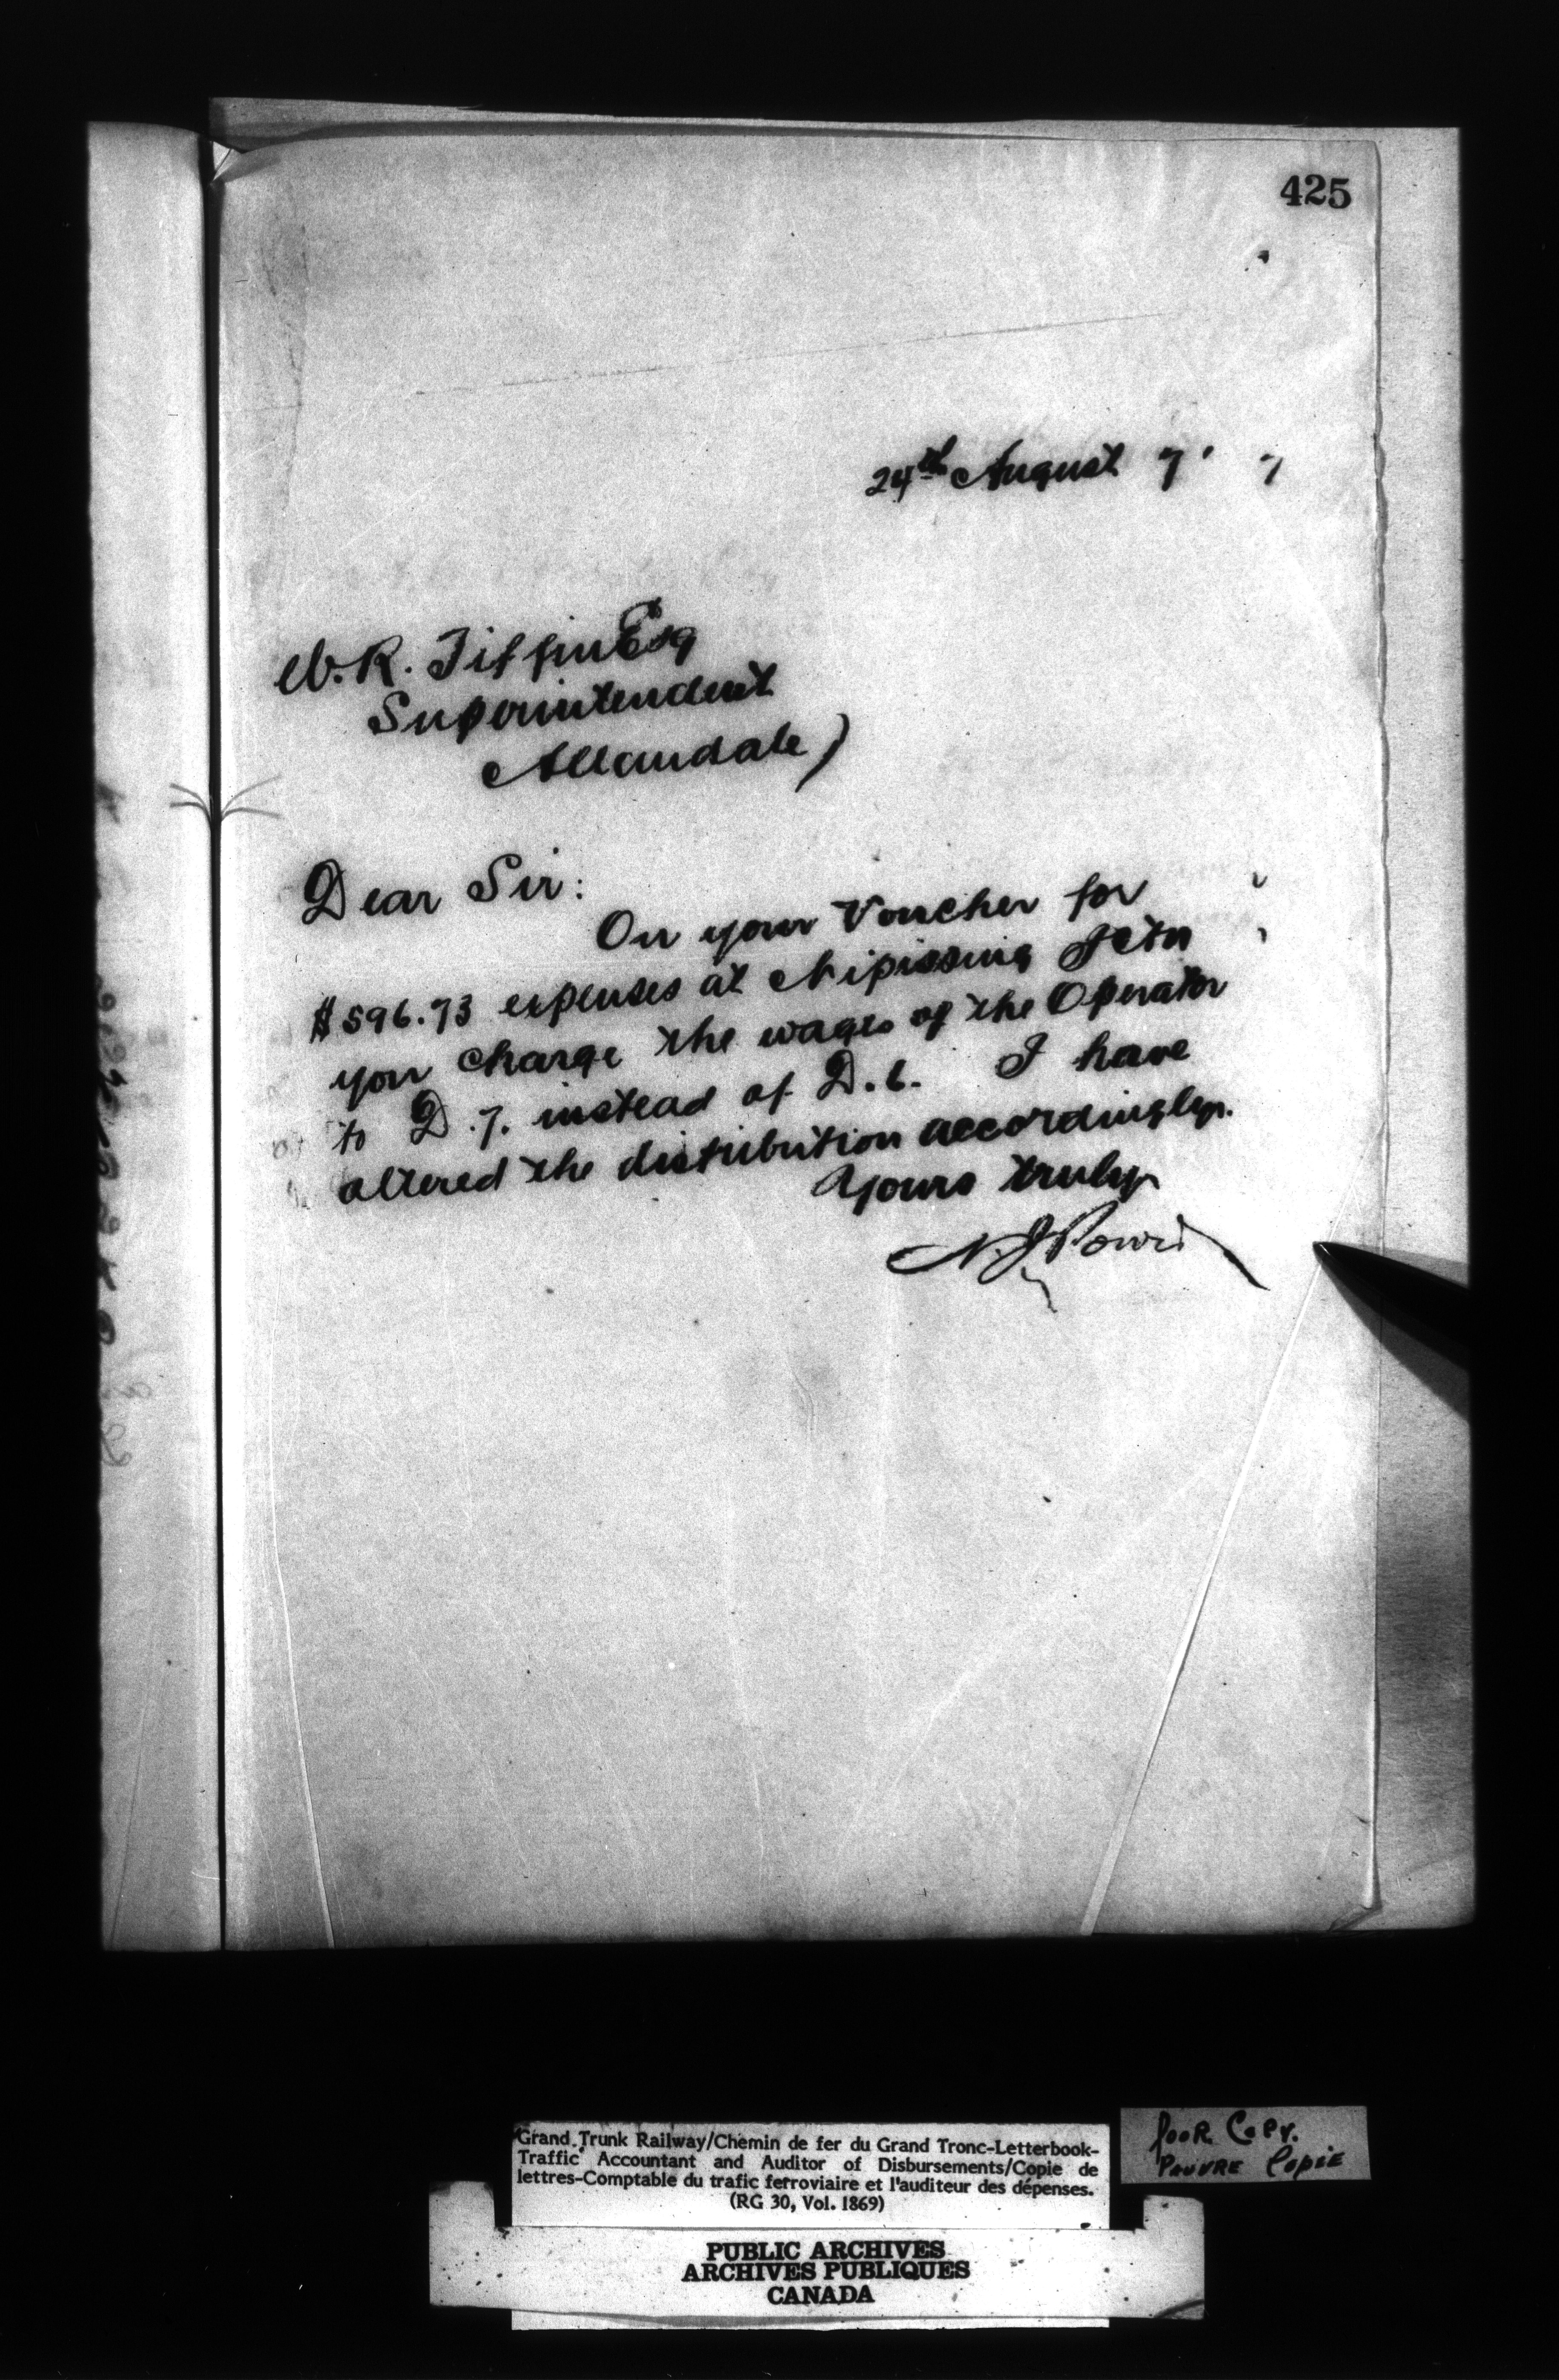 425
24th August 7' 7
W. R. Tiffin Esq
Superintendent
Allandale)
Dear Sir:
On your Voucher for
$596.73 expenses at Nipissing Jctn
you charge the wages of the Operator
to D.7. instead of D.6. I have
altered the distribution accordingly.
Yours truly
N. J. Power
Grand Trunk Railway/Chemin de fer du Grand Tronc-Letterbook-
Traffic Accountant and Auditor of Disbursements/Copie de
lettres-Comptable du trafic ferroviaire et l'auditeur des dépenses.
(RG 30, Vol. 1869)
POOR COPY.
PAUVRE COPIE
PUBLIC ARCHIVES
ARCHIVES PUBLIQUES
CANADA